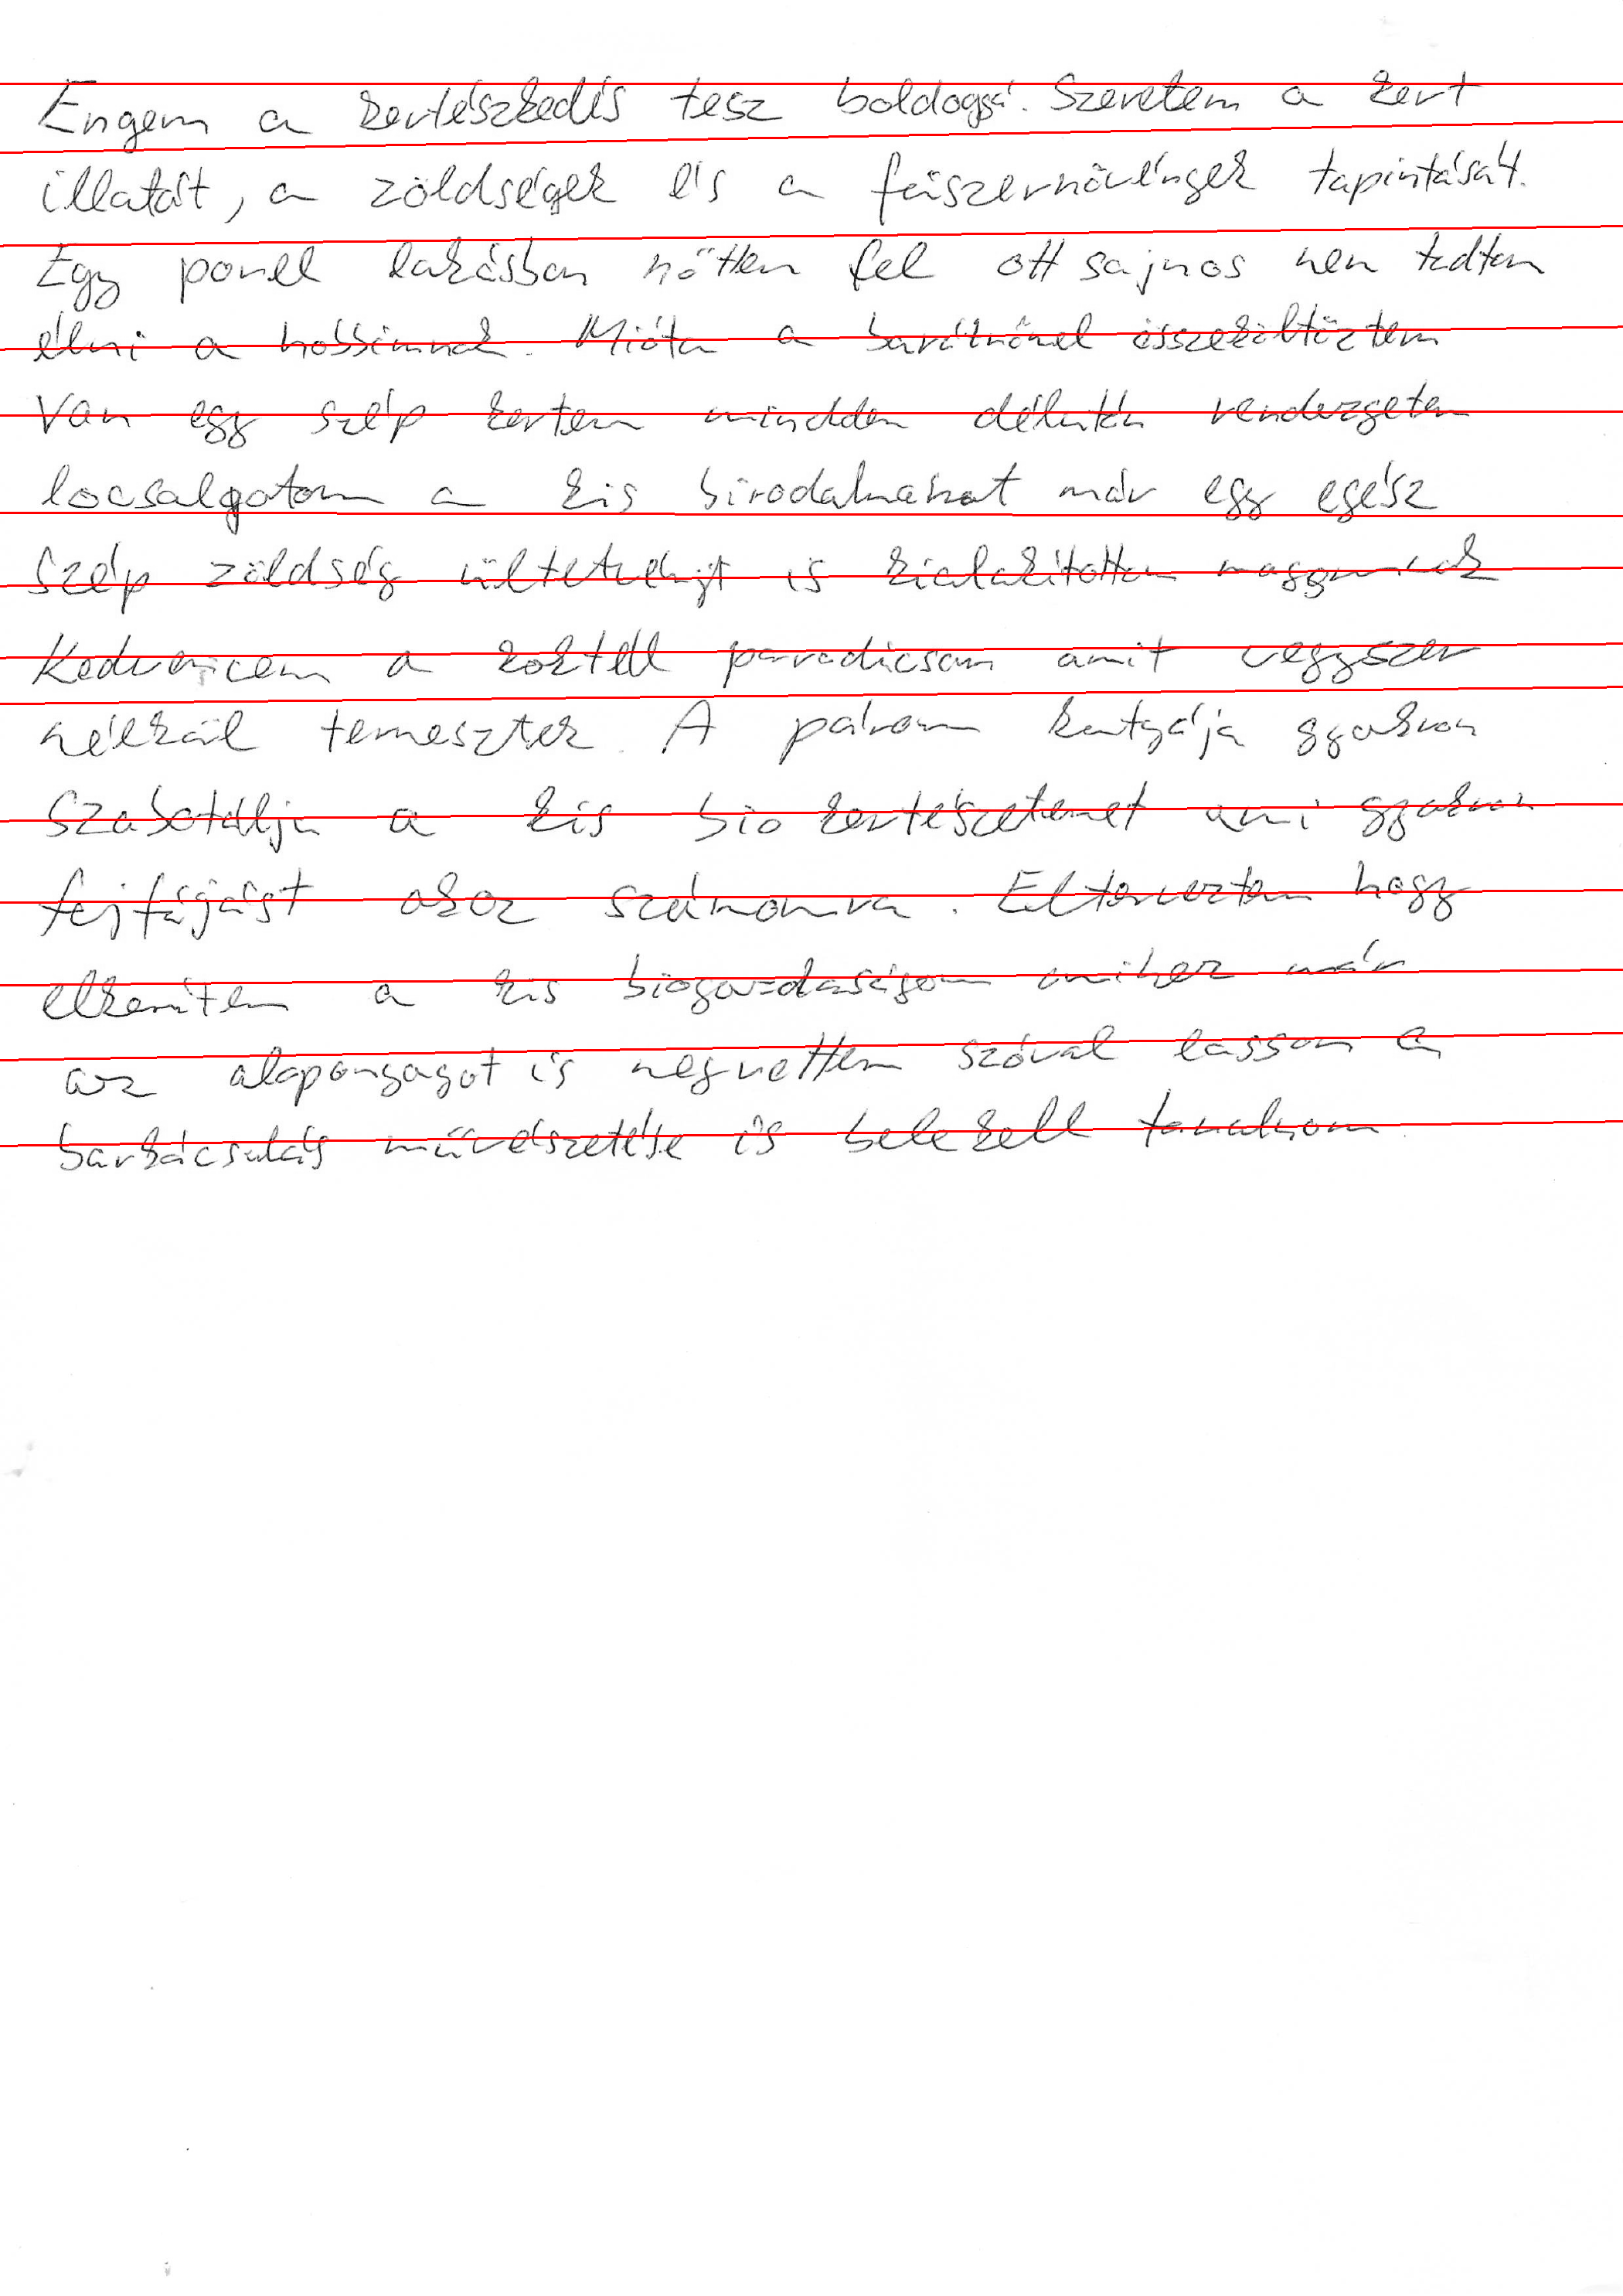 Engem a kertészkedés tesz boldoggá. Szeretem a kert
illatát, a zöldségek és a fűszernövények tapintását.
Egy panel lakásban nőttem fel ott sajnos nem tudtam
élni a hobbimnak. Mióta a barátnőmel összeköltöztem
Van egy szép kertem mindden délután rendezgetem
locsolgatom a kis birodalmakat már egy egész
szép zöldség ültetvényt is kialakítottam magamnak
Kedvencem a koktél paradicsom amit vegyszer
nélkül termesztek. A párom kutyája gyakran
szabotálja a kis bio kertészetemet ami gyakran
fejfájást okoz számomra. Elterveztem hogy
elkerítem a kis biogazdaságom amihez már
az alapanyagot is megvettem szóval lassan a
barkácsolás művészetébe is bele kell tanulnom.